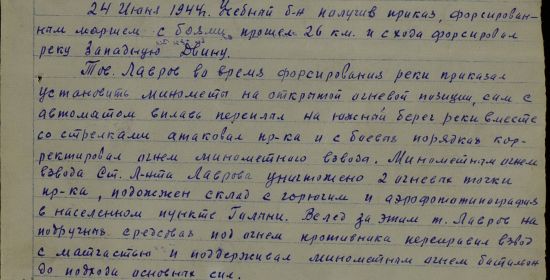 24 Июня 1944г. Учебный б-н получив приказ, форсирован-
ным маршем с боями прошел 26 км. и с хода форсировал
реку Западную Двину.
Тов. Лавров во время форсирования реки приказал
установить минометы на открытой огневой позиции, сам с
автоматом вплавь переплыл на южный берег реки вместе
со стрелками атаковал пр-ка и с боевых порядках кор-
ректировал огнем минометного взвода. Минометным огнем
взвода Ст. Л-нта Лаврова уничтожено 2 огневых точки
пр-ка, подожжен склад с горючим и аэрофотокинография
в населенном пункте Галыни. Вслед за этим т. Лавров на
подручных средствах под огнем противника переправил взвод
с матчастью и поддерживал минометным огнем батальон
до подхода основных сил.